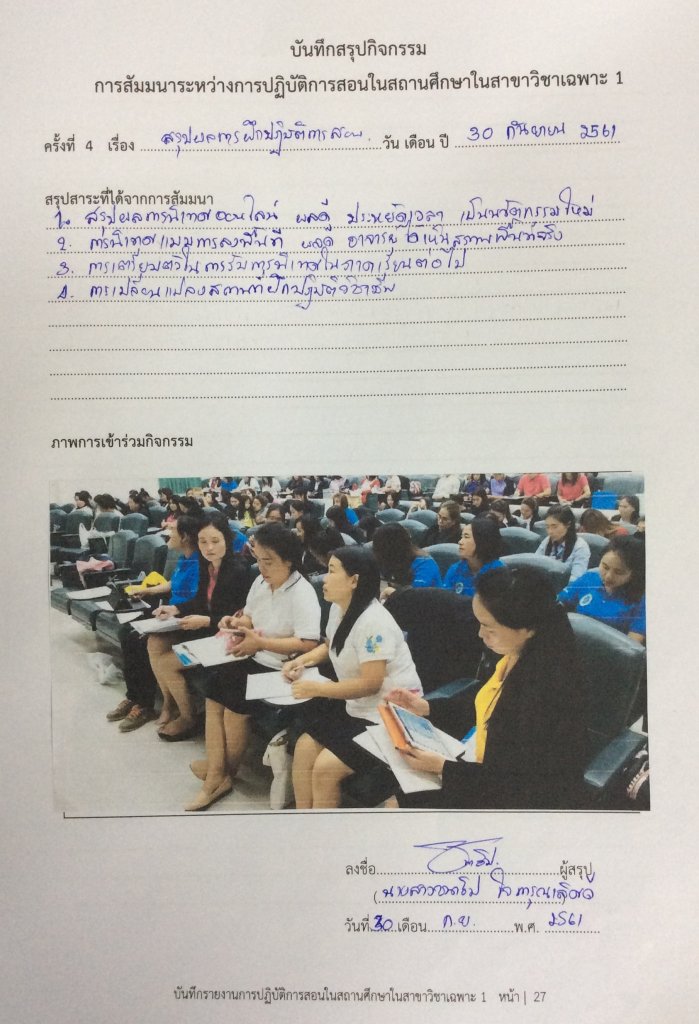 บันทึกสรุปกิจกรรม
การสัมมนาระหว่างการปฏิบัติการสอนในสถานศึกษาในสาขาวิชาเฉพาะ 1
ครั้งที่ 4 เรื่อง สรุปผลการฝึกปฏิบัติการสอน วัน เดือน ปี 30 กันยายน 2561
สรุปสาระที่ได้จากการสัมมนา
1. สรุปผลการนิเทศออนไลน์ ผลดี ประหยัดเวลา เป็นนวัตกรรมใหม่
2. การนิเทศแบบการลงพื้นที่ ผลดี อาจารย์ได้เห็นสภาพพื้นที่จริง
3. การเตรียมตัวในการรับการนิเทศในภาคเรียนต่อไป
4. การเปลี่ยนแปลงสถานที่ฝึกปฏิบัติวิชาชีพ
ภาพการเข้าร่วมกิจกรรม
ลงชื่อ ผู้สรุป
(นางสาว
วันที่ 30 เดือน ก.ย. พ.ศ. 2561
บันทึกรายงานการปฏิบัติการสอนในสถานศึกษาในสาขาวิชาเฉพาะ 1 หน้า | 27